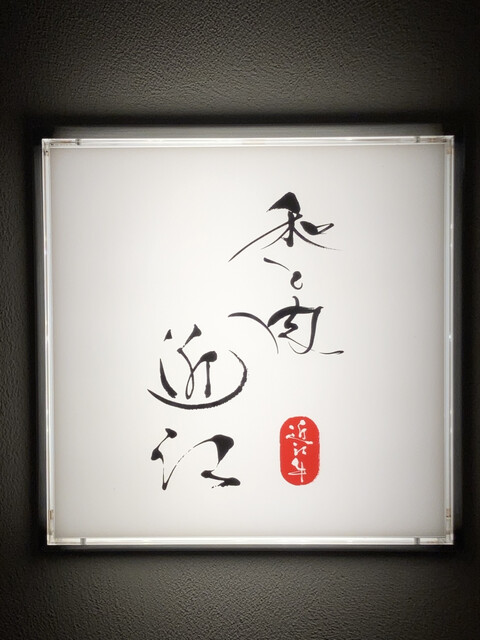 和と肉
近江
近江牛